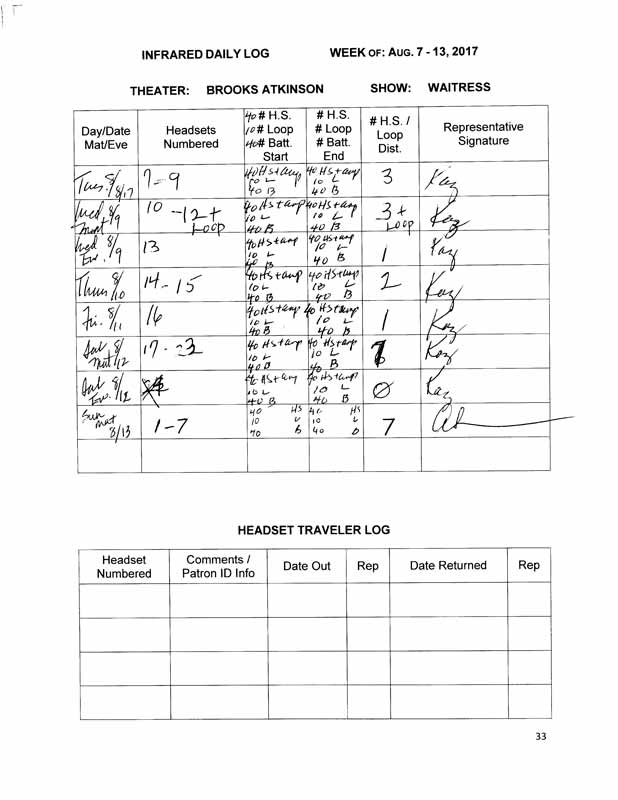 INFRARED DAILY LOG WEEK OF: AUG. 7 - 13, 2017
THEATER: BROOKS ATKINSON SHOW: WAITRESS
Day/Date
Mat/Eve
Headsets
Numbered
40 # H.S.
10 # Loop
40 # Batt.
Start
# H.S.
# Loop
# Batt.
End
# H.S. /
Loop
Dist.
Representative
Signature
Tues. 8/8/17 7-9 40 HS 10 L 40 B 40 HS 10 L 40 B 3 Kay
Wed 8/9 Mat 10-12 + Loop 40 HS 10 L 40 B 40 HS 10 L 40 B 3 + Loop Kay
Wed 8/9 Eve. 13 40 HS 10 L 40 B 40 HS 10 L 40 B 1 Kay
Thurs 8/10 14-15 40 HS 10 L 40 B 40 HS 10 L 40 B 2 Kay
Fri. 8/11 16 40 HS 10 L 40 B 40 HS 10 L 40 B 1 Kay
Sat 8/12 Mat 17-23 40 HS 10 L 40 B 40 HS 10 L 40 B 7 Kay
Sat 8/12 Eve. 40 HS 10 L 40 B 40 HS 10 L 40 B 0 Kay
Sun Mat 8/13 1-7 40 HS 10 L 40 B 40 HS 10 L 40 7
HEADSET TRAVELER LOG
Headset
Numbered
Comments /
Patron ID Info
Date Out
Rep
Date Returned
Rep
33